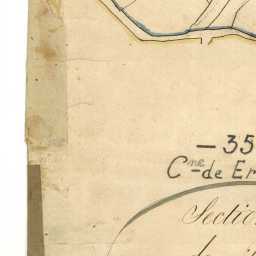 - 35
Cne de Er
Sectio